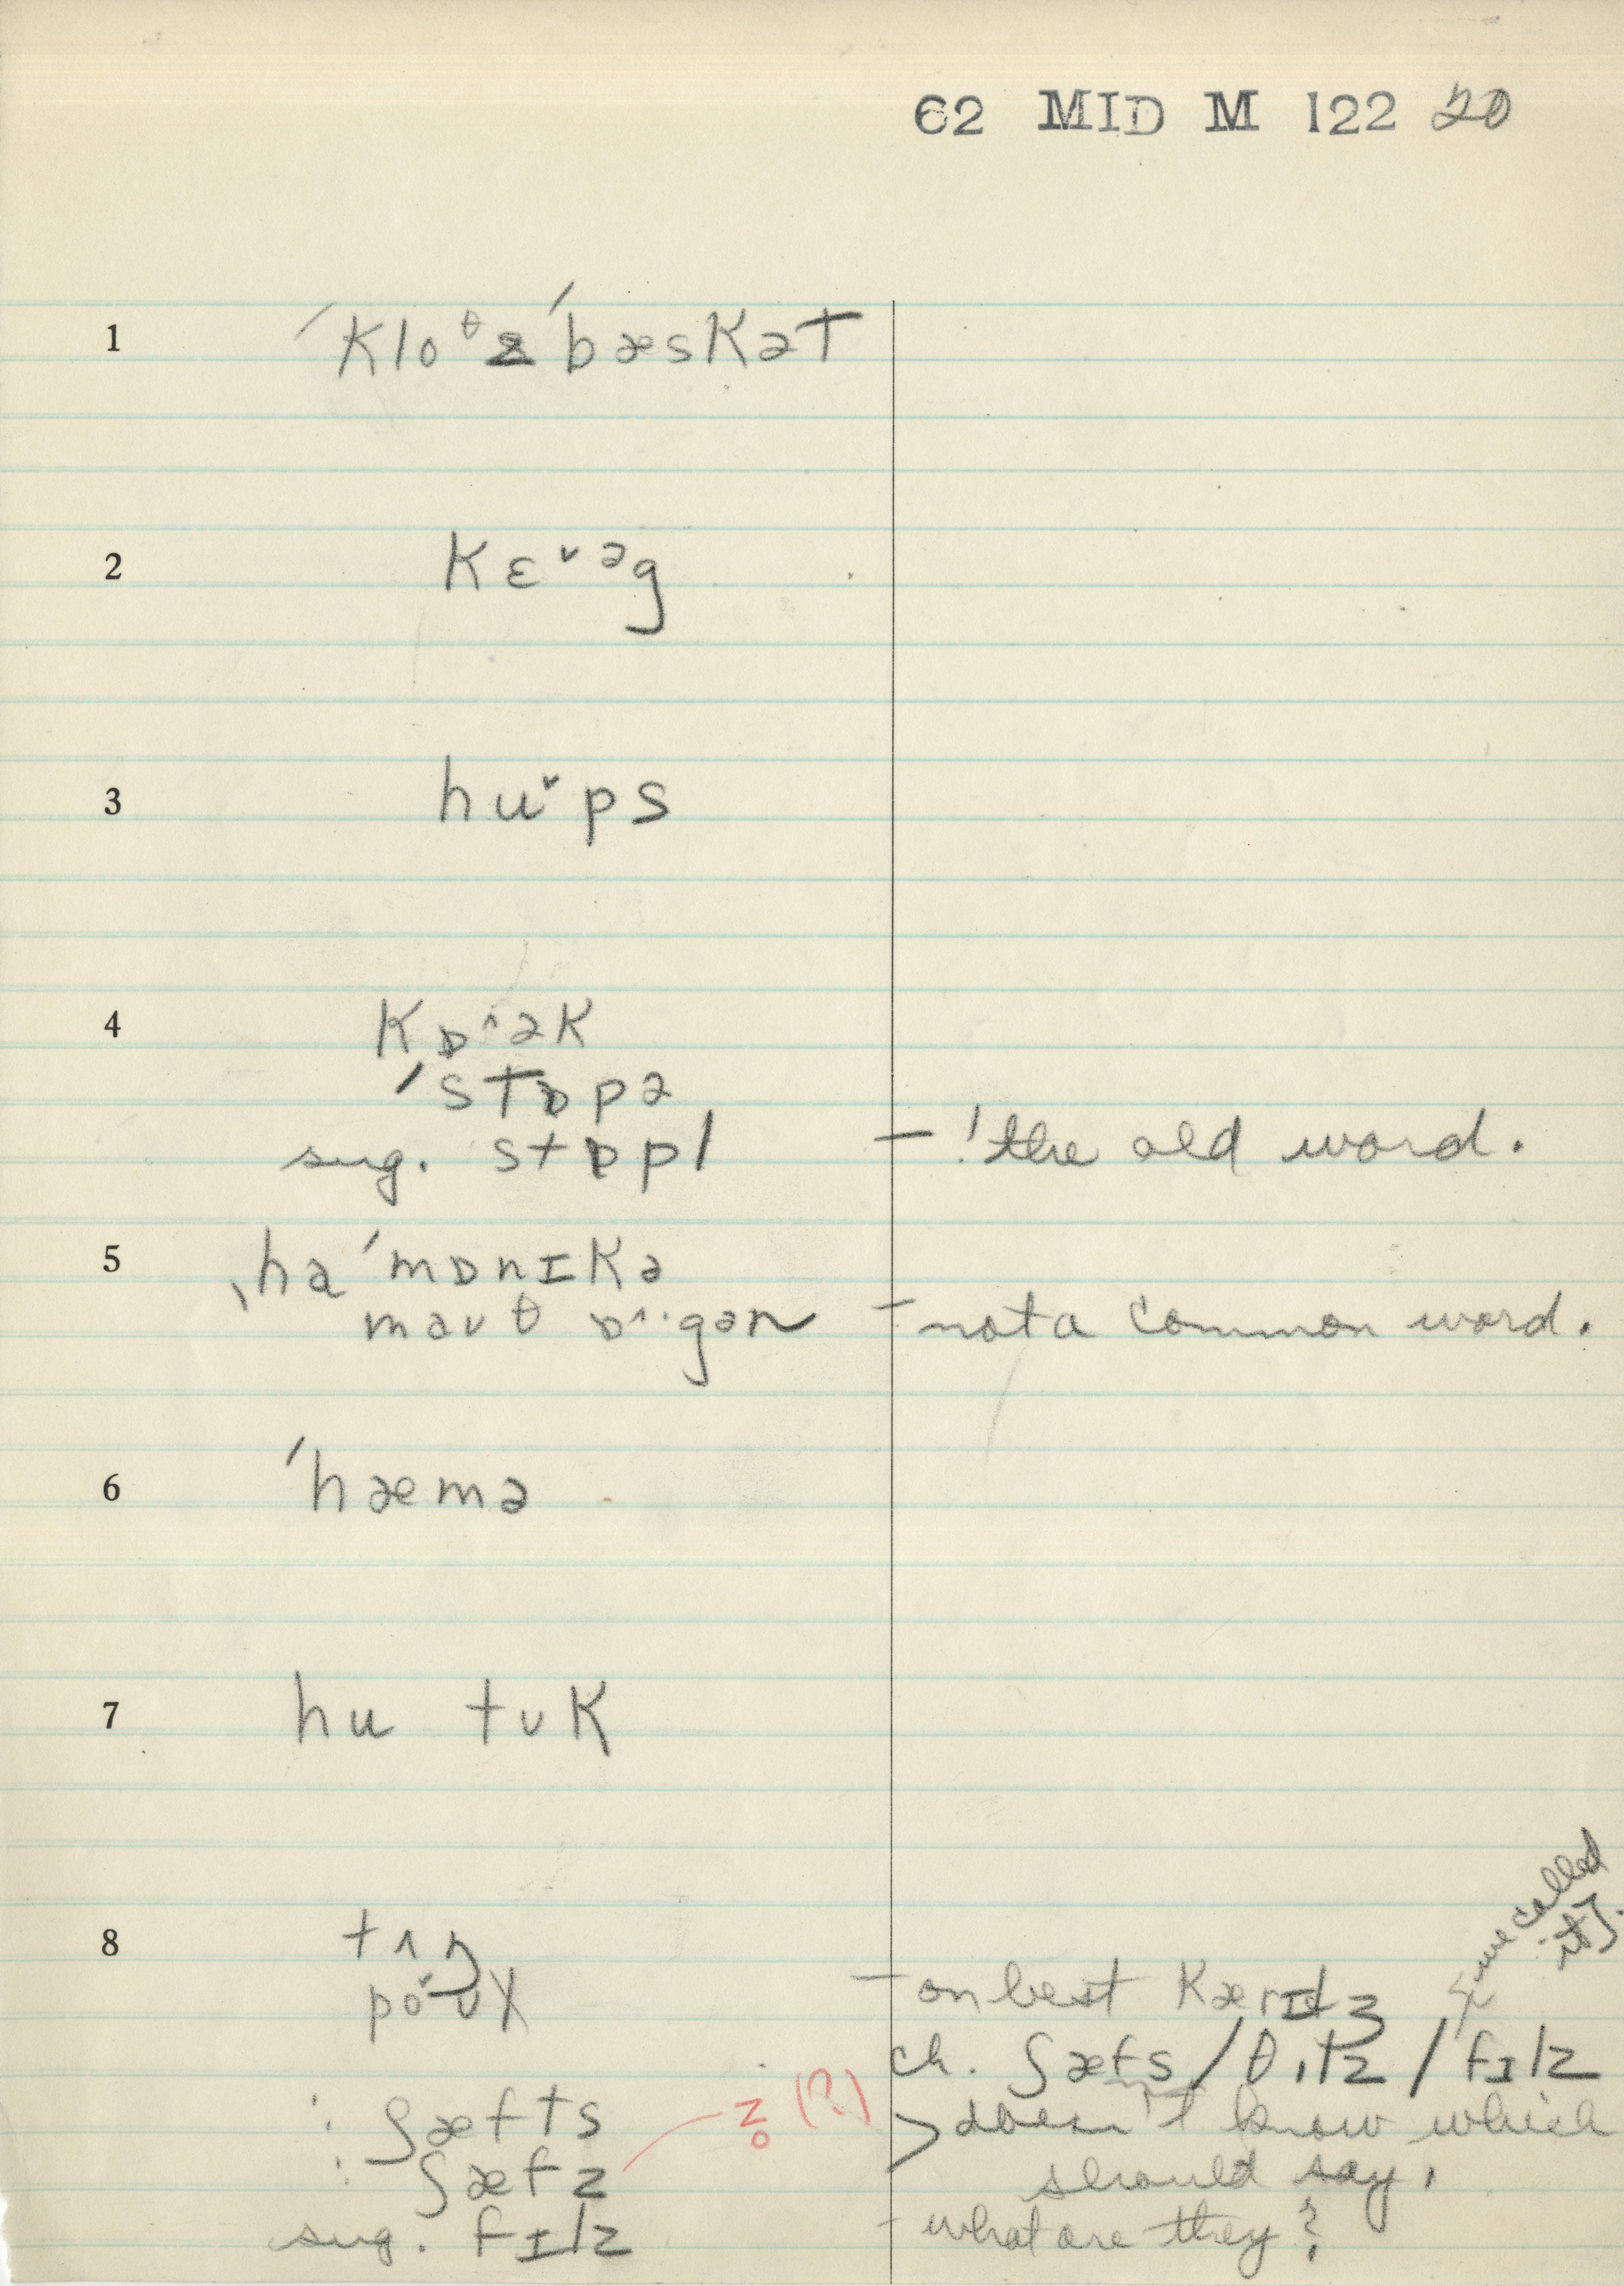 62 MID M 122 20
1 ˈkloᶿzˈbæskət
2 kɛ˅əg
3 hu˅ps
4 kɒ^ək
ˈstɒpə
sug. stɒpl - ! the old word.
5 ˌhaˈmɒnɪkə
mauθ ɒ^·gən - not a common word.
6 ˈhæmə
7 hu tʊk
8 tʌŋ
po˅ʊl - on best kærɪdʒ
we called it].
ch. ʃæfs / θɪlz / fɪlz
: ʃæfts > doesn't know which
: ʃæfz No (?) should say.
sug. fɪlz - what are they?